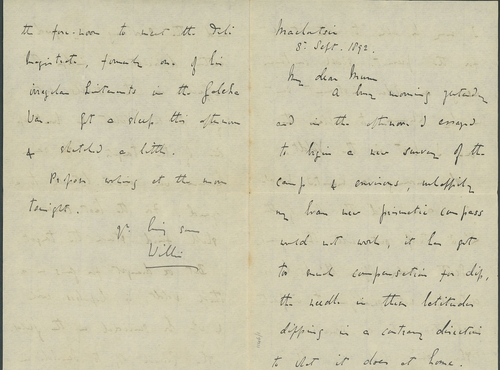 8th Sept. 1892.
My dear Mum
A busy morning yesterday
and in the afternoon I essayed
to begin a new survey of the
camp & environs, unhappily
my bran new prismatic compass
would not work, it has got
too much compensation for dip,
the needle in these latitudes
dipping in a contrary direction
to what it does at home.
the fore-noon to meet the
Magistrate, formerly one of his
irregular Lieutenants in the Galeka
War. Got a sleep this afternoon
& sketched a little.
Propose working at the moon
tonight.
Yr loving son
Willie